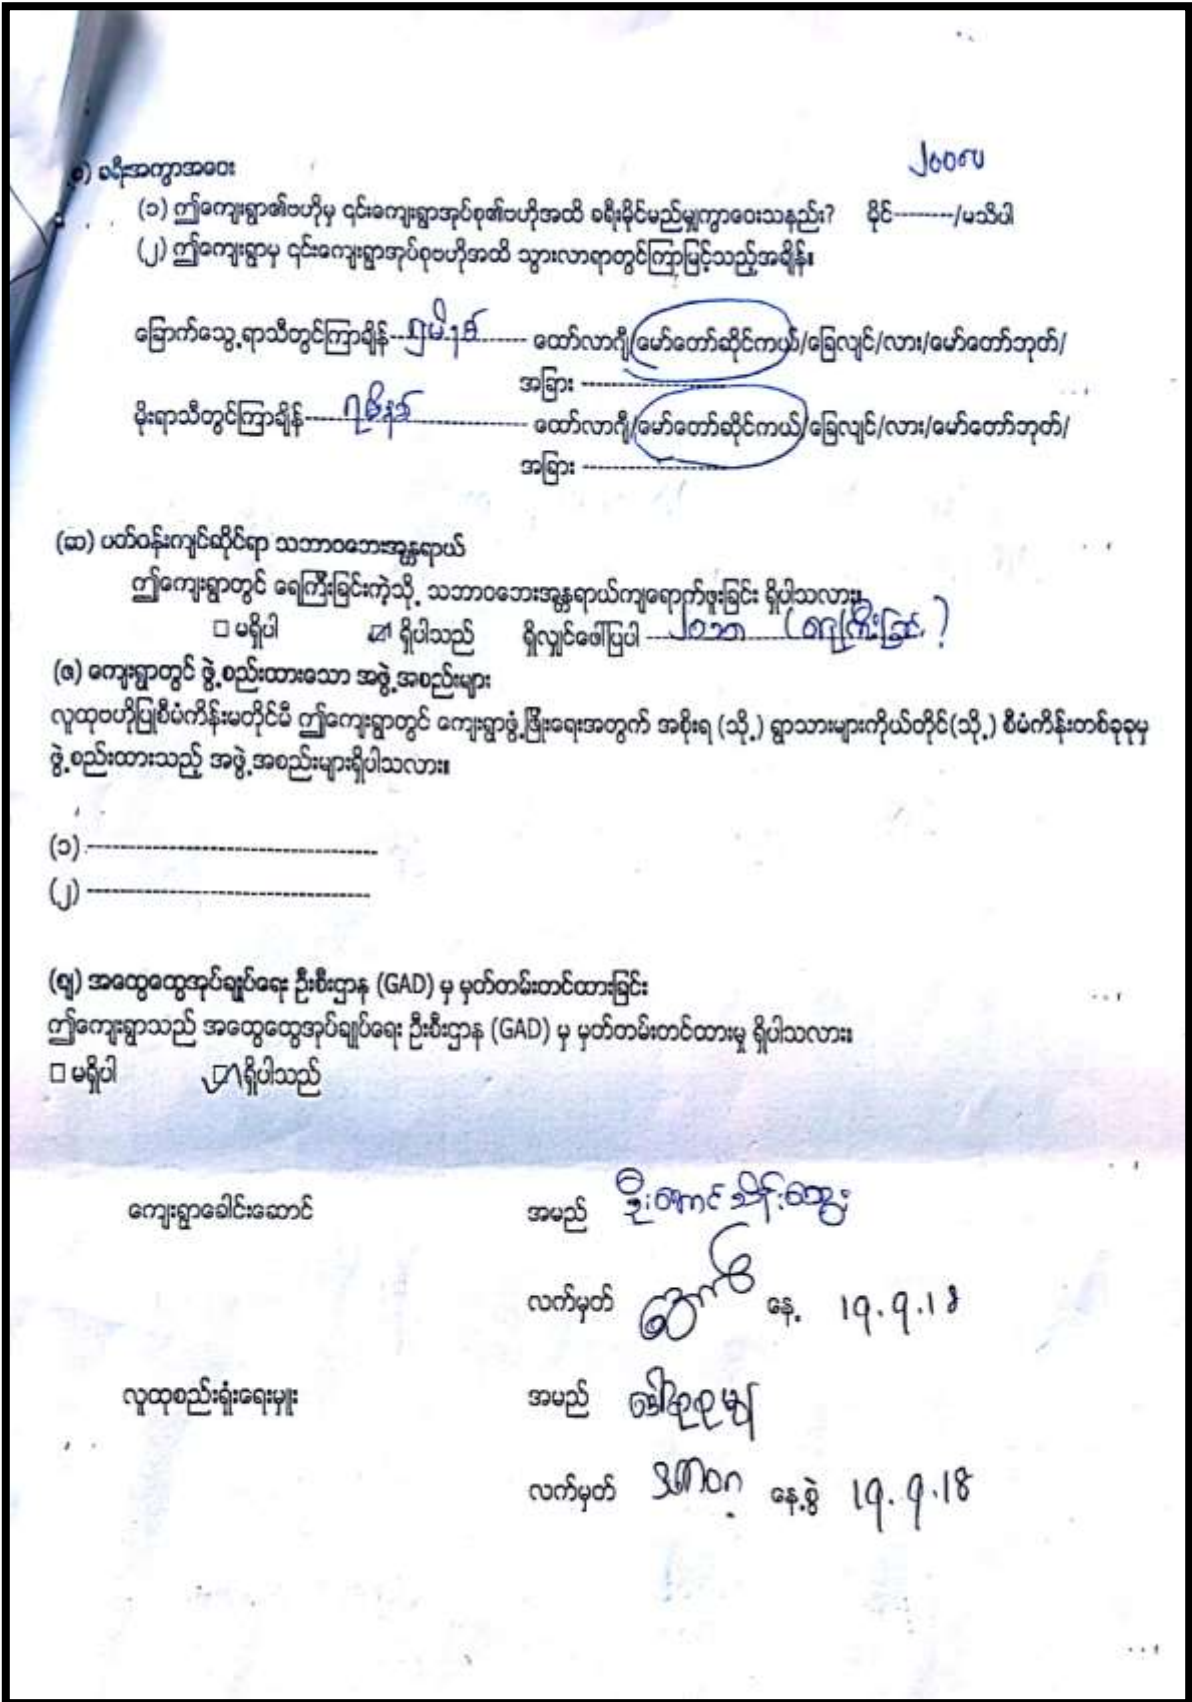 ၂၀၀ပေ
စ) ခရီးအကွာအဝေး
(၁) ဤကျေးရွာ၏ဗဟိုမှ ၎င်းကျေးရွာအုပ်စု၏ဗဟိုအထိ ခရီးမိုင်မည်မျှကွာဝေးသနည်း? မိုင်---------/မသိပါ
(၂) ဤကျေးရွာမှ ၎င်းကျေးရွာအုပ်စုဗဟိုအထိ သွားလာရာတွင်ကြာမြင့်သည့်အချိန်။
ခြောက်သွေ့ရာသီတွင်ကြာချိန်--၅မိနစ်---------- ထော်လာဂျီ/မော်တော်ဆိုင်ကယ်/ခြေလျင်/လား/မော်တော်ဘုတ်/
အခြား --------------------
မိုးရာသီတွင်ကြာချိန်------၇မိနစ်---------------- ထော်လာဂျီ/မော်တော်ဆိုင်ကယ်/ခြေလျင်/လား/မော်တော်ဘုတ်/
အခြား --------------------
(ဆ) ပတ်ဝန်းကျင်ဆိုင်ရာ သဘာဝဘေးအန္တရာယ်
ဤကျေးရွာတွင် ရေကြီးခြင်းကဲ့သို့ သဘာဝဘေးအန္တရာယ်ကျရောက်ဖူးခြင်း ရှိပါသလား။
□ မရှိပါ ☑ ရှိပါသည် ရှိလျှင်ဖေါ်ပြပါ ---------------- (ရေကြီးခြင်း)
(ဇ) ကျေးရွာတွင် ဖွဲ့စည်းထားသော အဖွဲ့အစည်းများ
လူထုဗဟိုပြုစီမံကိန်းမတိုင်မီ ဤကျေးရွာတွင် ကျေးရွာဖွံ့ဖြိုးရေးအတွက် အစိုးရ (သို့) ရွာသားများကိုယ်တိုင်(သို့) စီမံကိန်းတစ်ခုခုမှ
ဖွဲ့စည်းထားသည့် အဖွဲ့အစည်းများရှိပါသလား။
(၁) -------------------------------------
(၂) ------------------------------------
(ဈ) အထွေထွေအုပ်ချုပ်ရေး ဦးစီးဌာန (GAD) မှ မှတ်တမ်းတင်ထားခြင်း
ဤကျေးရွာသည် အထွေထွေအုပ်ချုပ်ရေး ဦးစီးဌာန (GAD) မှ မှတ်တမ်းတင်ထားမှု ရှိပါသလား။
□ မရှိပါ ☑ ရှိပါသည်
ကျေးရွာခေါင်းဆောင် အမည် ဦးအောင်သိန်းထွေး
လက်မှတ် နေ့ 19.9.18
လူထုစည်းရုံးရေးမှူး အမည်
လက်မှတ် နေ့စွဲ 19.9.18